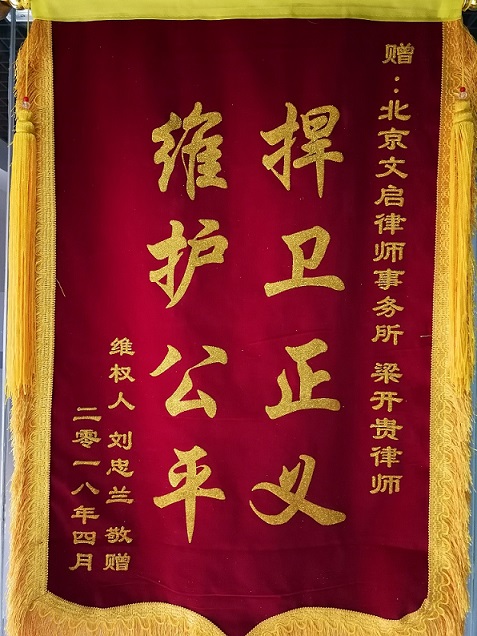 赠：北京文启律师事务所 梁开贵律师
捍卫正义
维护公平
维权人 刘忠兰 敬赠
二零一八年四月